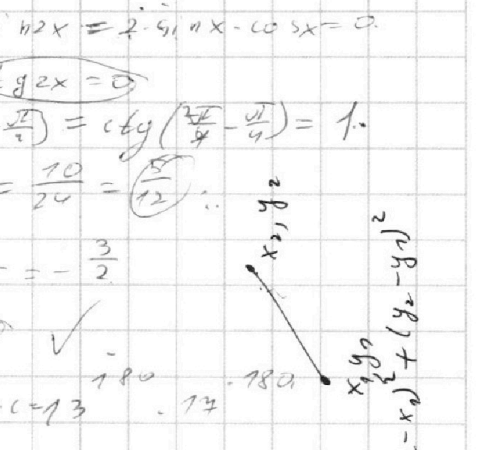 in2x = 2·sinx·cosx = 0.
g2x = 0
π/2) = ctg(2π/4 - π/4) = 1.
= 10/24 = 5/12
= - 3/2
180 · 180
c=13 · 17
x₂, y₂
x₁, y₁
- x₂)² + (y₂ - y₁)²